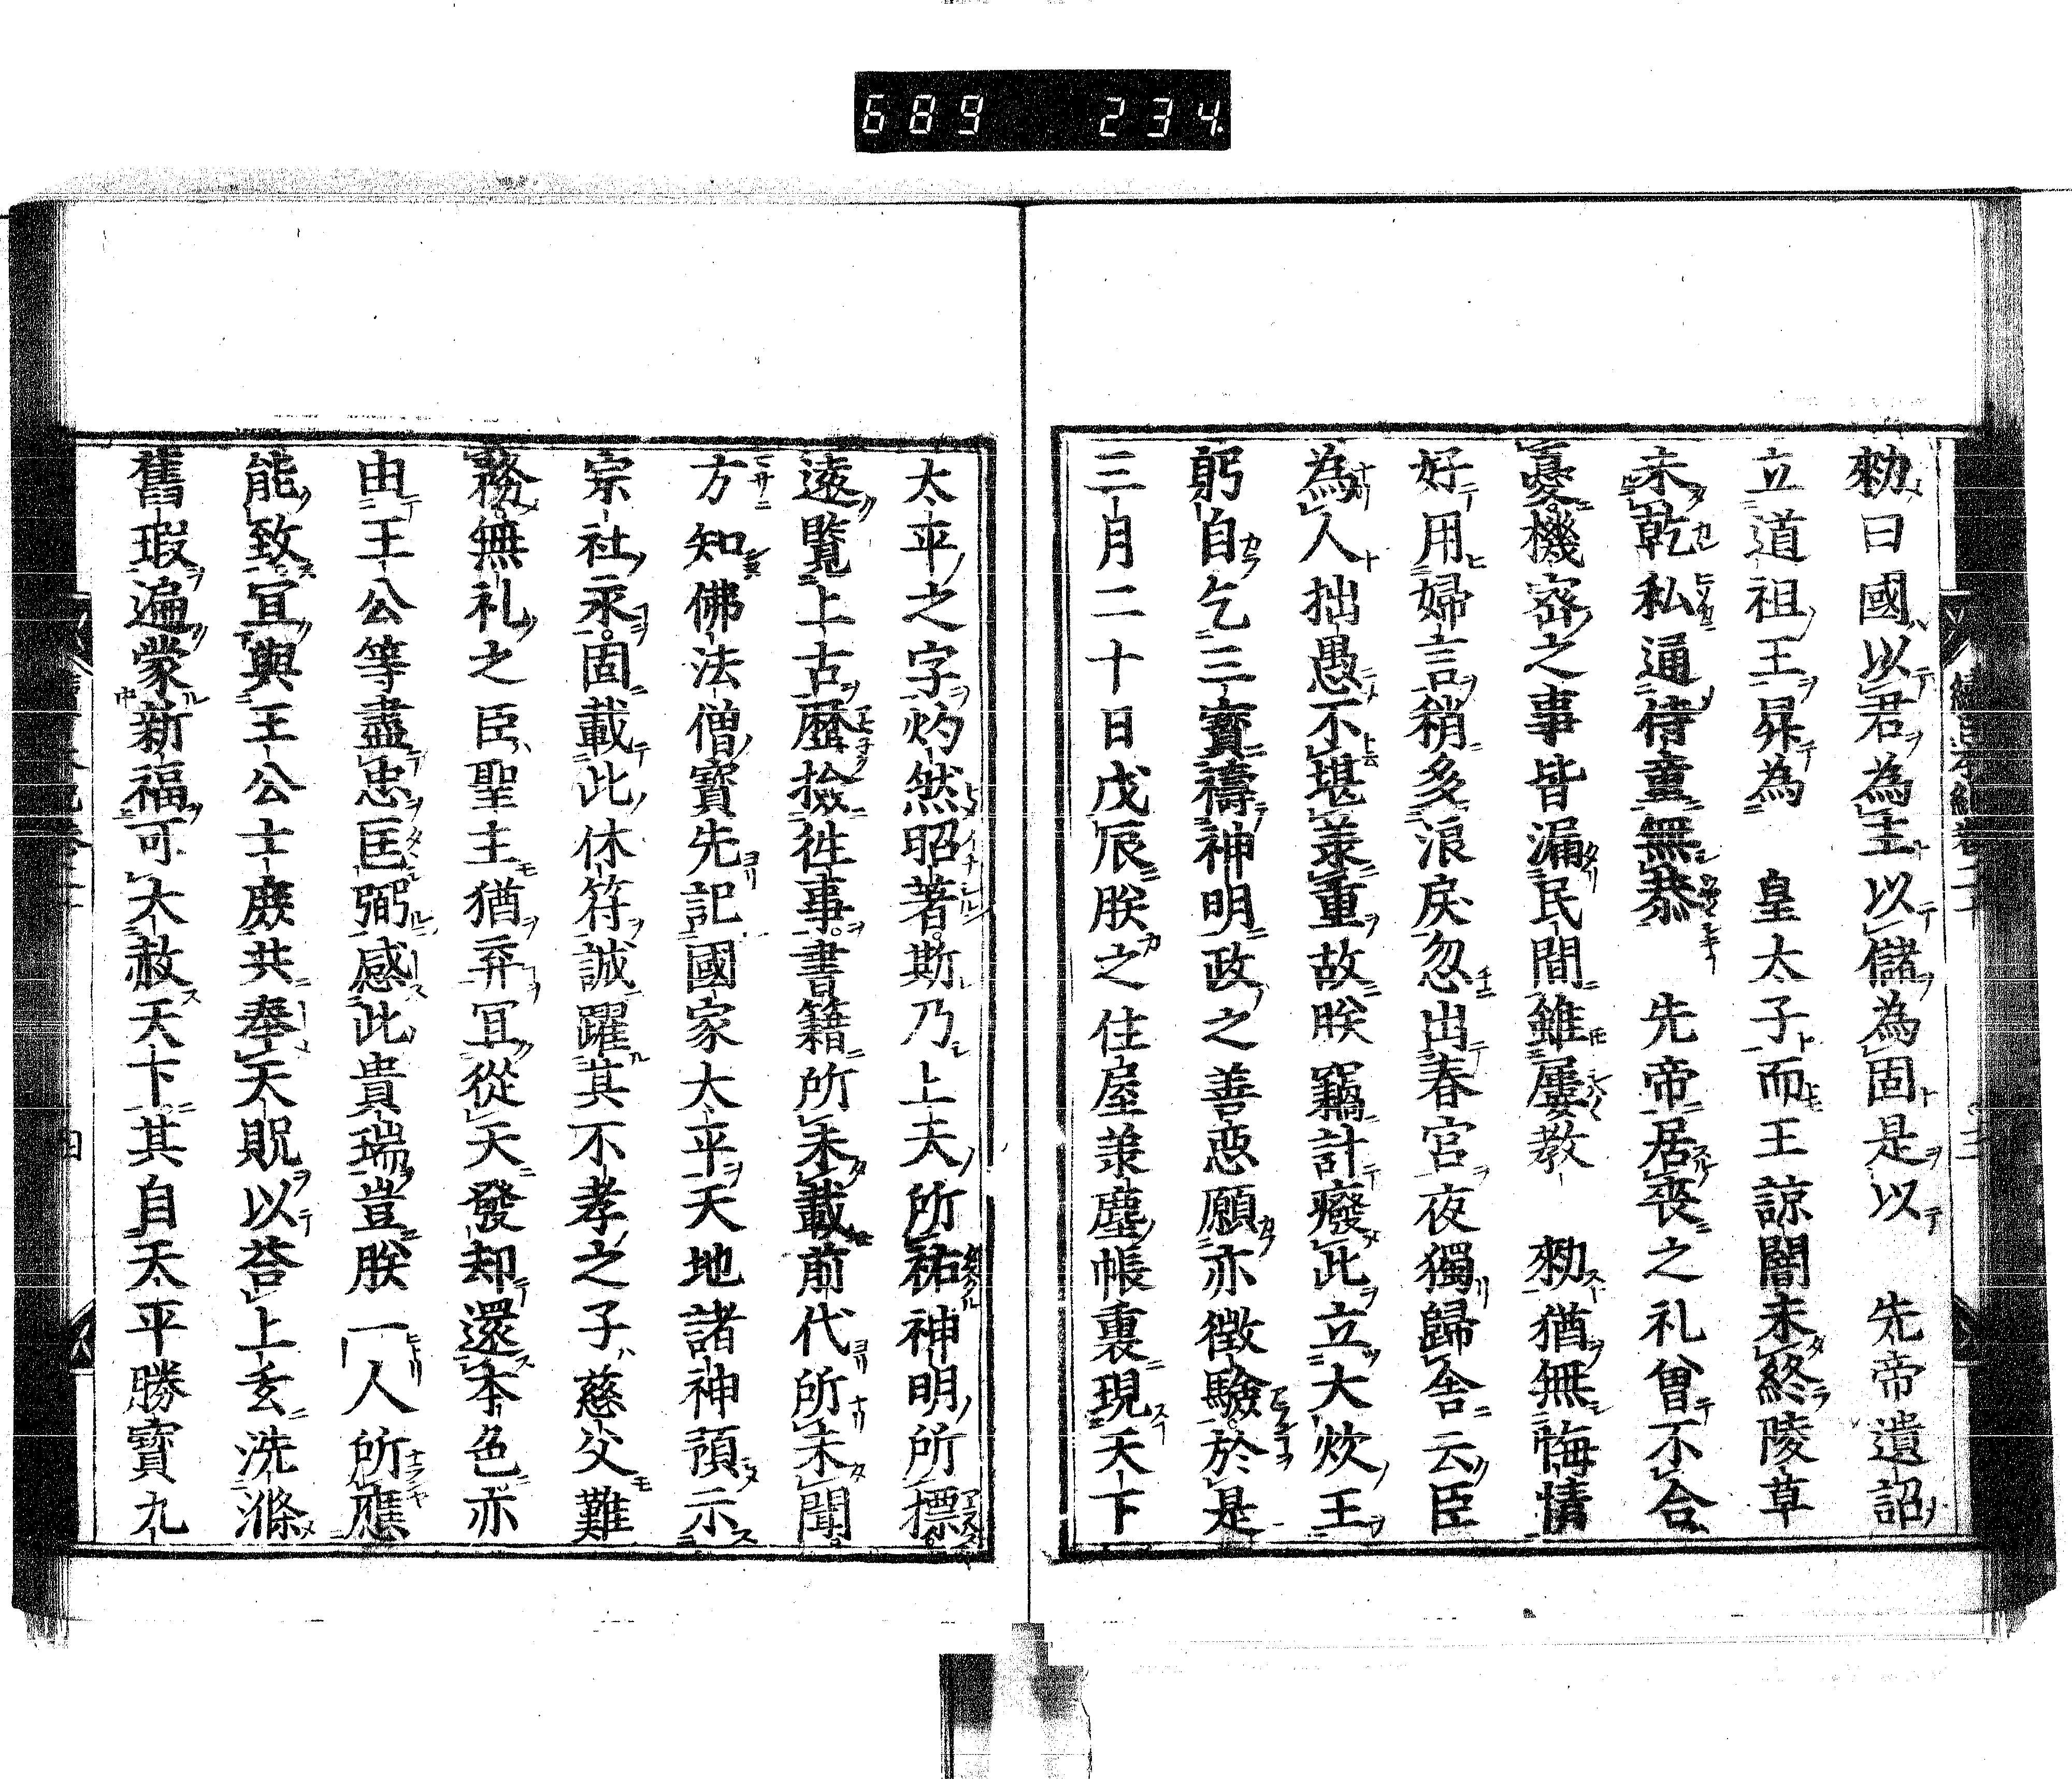 689 234.
勑曰國以君為主以儲為固是以　先帝遺詔
立道祖王昇為　皇太子而王諒闇未終陵草
未乾私通侍童無恭　先帝居喪之礼曾不合
憂機密之事皆漏民間雖屢教　勑猶無悔情
好用婦言稍多浪戾忽出春宮夜獨歸舍云臣
為人拙愚不堪兼重故朕竊計癈此立大炊王
躬自乞三寶禱神明政之善惡願亦徵驗於是
三月二十日戊辰朕之住屋兼塵帳裏現天下
太平之字灼然昭著斯乃上天所祐神明所標
遠覽上古歷撿徃事書籍所未載前代所未聞
方知佛法僧寶先記國家太平天地諸神預示
宗社永固載此休符誠躍其不孝之子慈父難
務無礼之臣聖主猶弃冝從天發却還本色亦
由王公等盡忠匡弼感此貴瑞豈朕一人所應
能致冝與王公士庶共奉天貺以荅上玄洗滌
舊瑕遍蒙新福可大赦天下其自天平勝寶九